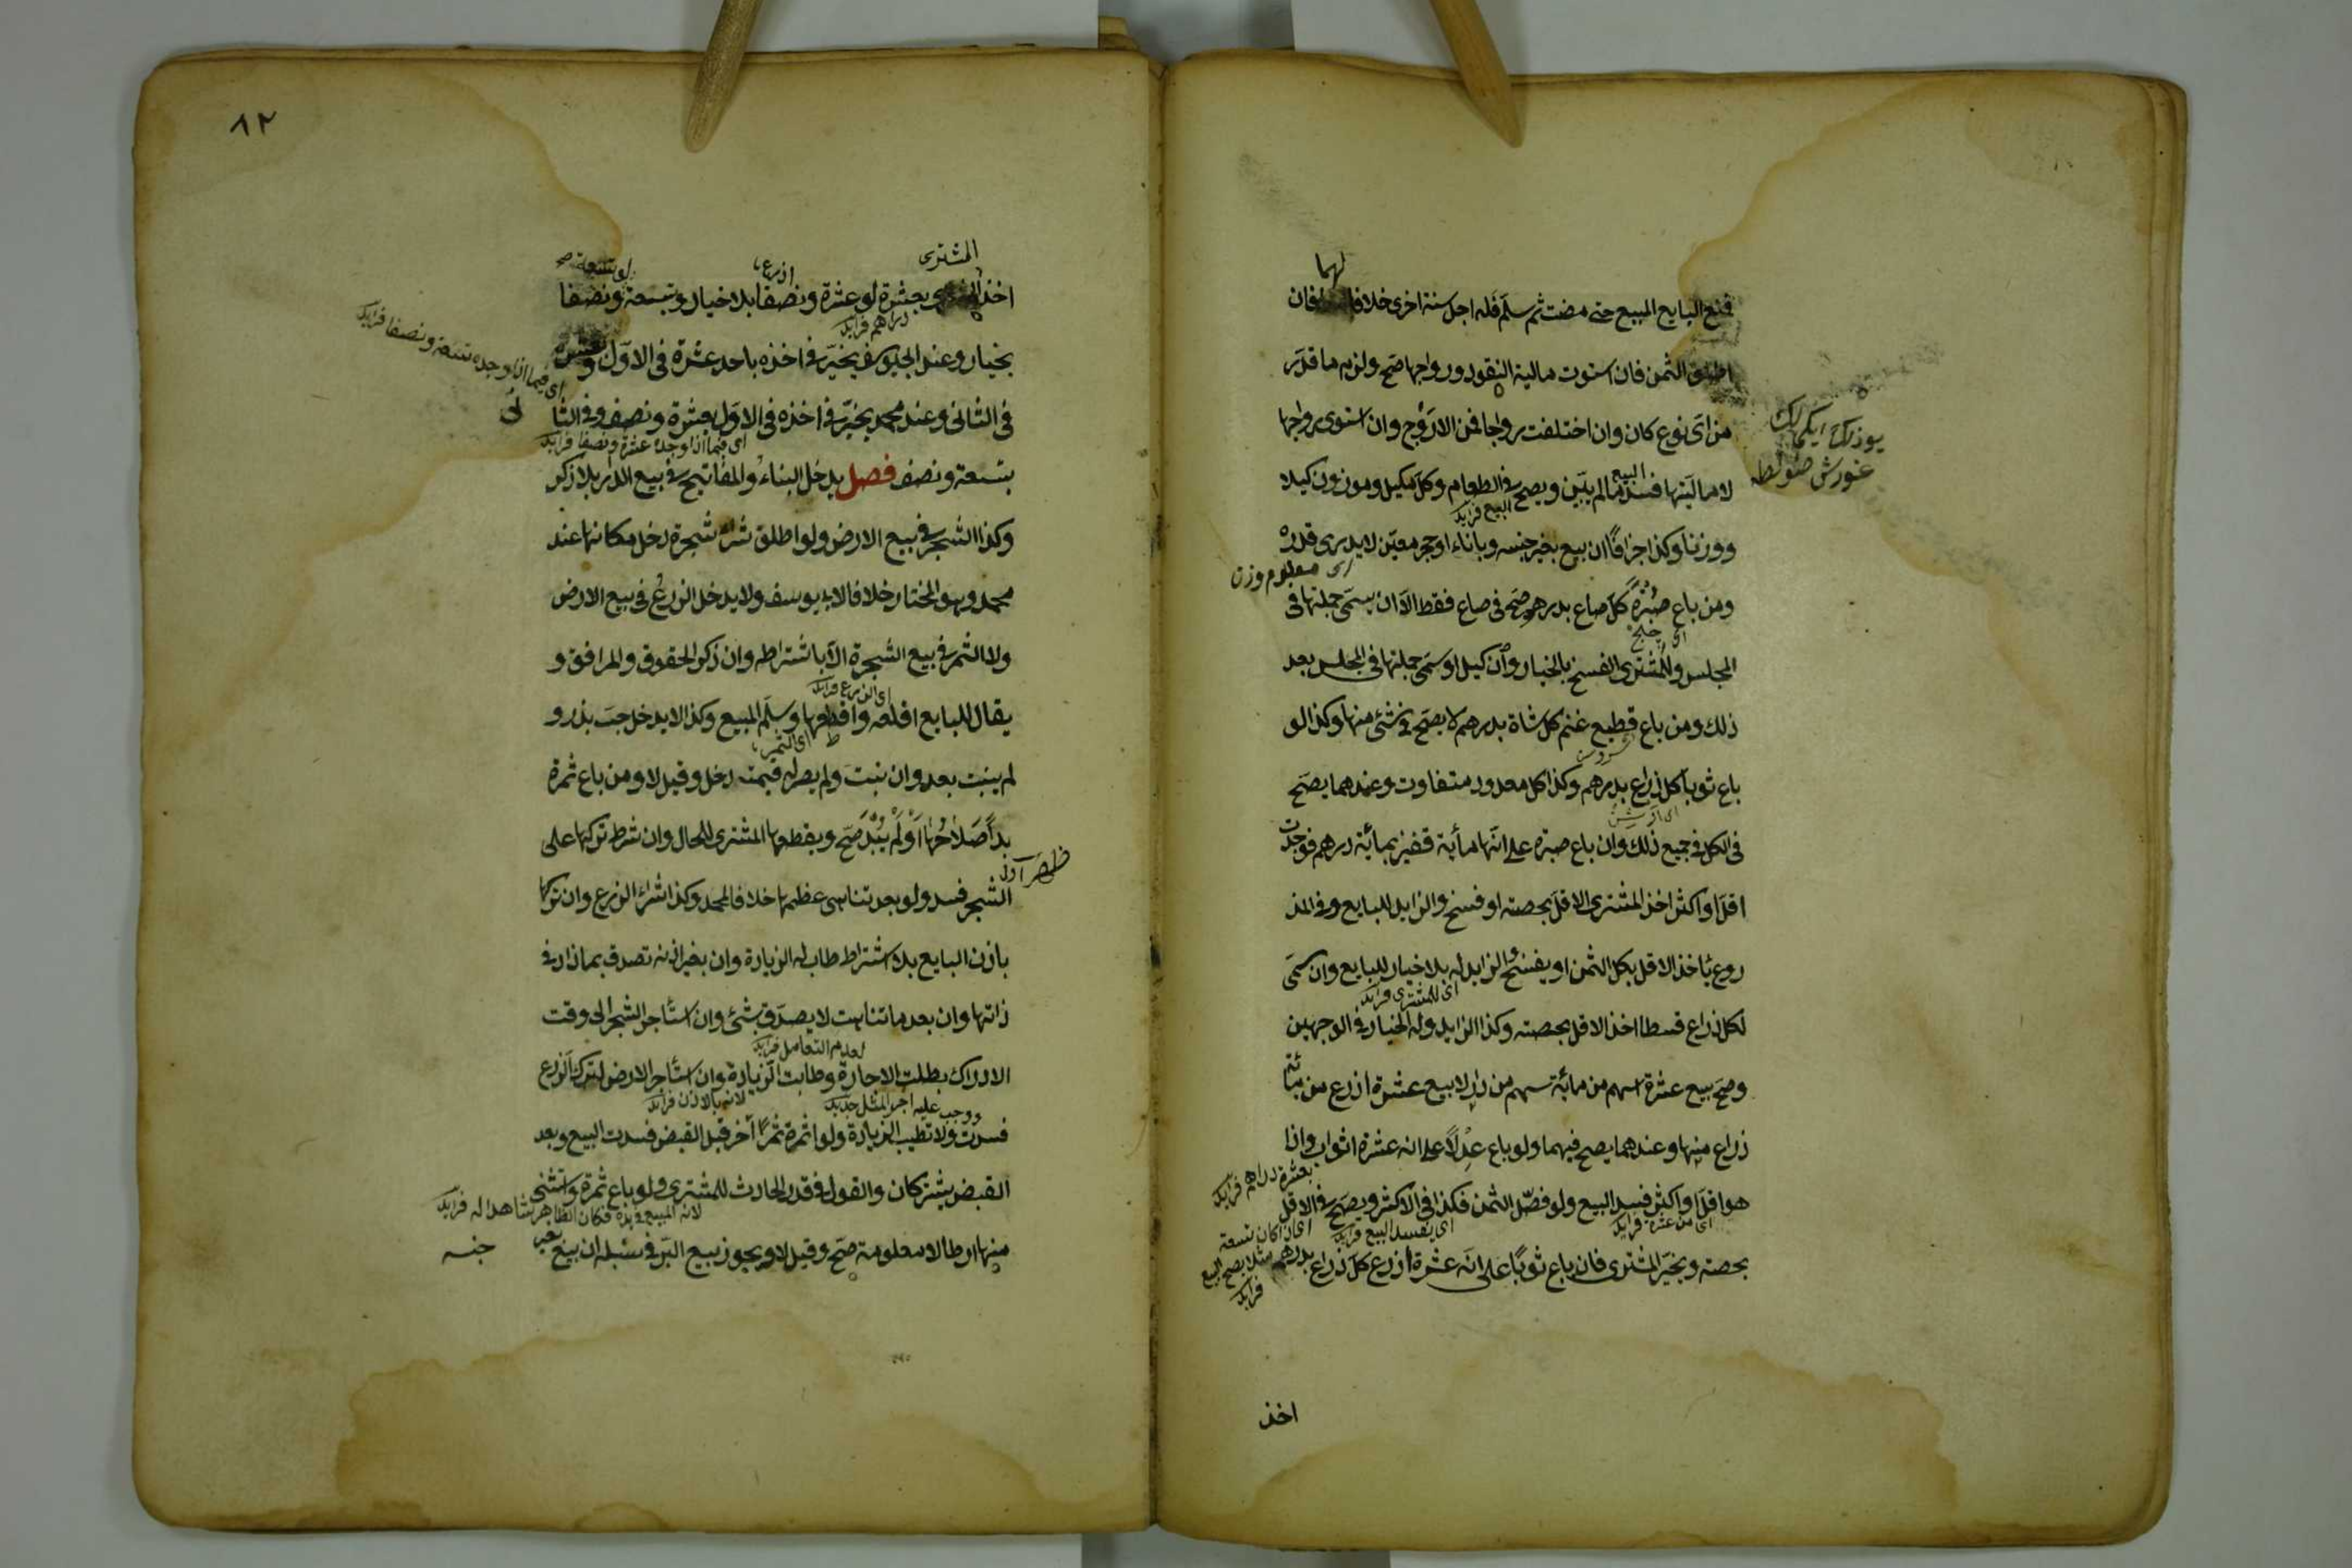 لهما
فمنع البايع المبيع حتى مضت ثم سلم فله اجل سنة اخرى خلافا فان
اطلق الثمن فان استوت مالية النقود ورواجها صح ولزم ما قدر
من اى نوع كان وان اختلفت رواجا فمن الاروج وان استوى رواجها
لا ماليتها فسد ما لم يبين ويصح فى الطعام وكل مكيل وموزون كيلا
البيع
البيع فرايد
ووزنا وكذا جزافا ان بيع بغير جنسه وباناء او حجر معين لا يدرى قدره
اى معلوم وزن
ومن باع صبرة كل صاع بدرهم صح فى صاع فقط الا ان يسمى جملتها فى
المجلس وللمشترى الفسخ بالخيار وان كيل او سمى جملتها فى المجلس بعد
ذلك ومن باع قطيع غنم كل شاة بدرهم لا يصح فى شئ منها وكذا لو
باع ثوبا كل ذراع بدرهم وكذا كل معدود متفاوت وعندهما يصح
فى الكل فى جميع ذلك وان باع صبرة على انها مأية قفيز بمأية درهم فوجدت
اقل او اكثر اخذ المشترى الاقل بحصته او فسخ والزايد للبايع وفى المذ
روع يأخذ الاقل بكل الثمن او يفسخ والزايد له بلا خيار للبايع وان سمى
اى للمشترى فرايد
لكل ذراع قسطا اخذ الاقل بحصته وكذا الزايد وله الخيار فى الوجهين
وصح بيع عشرة اسهم من مائة سهم من دار لا بيع عشرة اذرع من مائة
ذراع منها وعندهما يصح فيهما ولو باع عدلا على انه عشرة اثواب واذا
بعشرة دراهم فرايد
هو اقل او اكثر فسد البيع ولو فصل الثمن فكذا فى الاكثر ويصح فى الاقل
اى من عشرة فرايد
اى يفسد البيع فرايد
اى اذا كان تسعة
بحصته ويخير المشترى فان باع ثوبا على انه عشرة اذرع كل ذراع بدرهم
مثلا يصح البيع
فرايد
اخذ
٨٢
المشترى
اذرع
لو بتسعة صح
اخذ بعشرة لو عشرة ونصفا بلا خيار وبتسعة لو تسعة ونصفا
دراهم فرايد
اى فيما اذا وجده تسعة ونصفا فرايد
بخيار وعند ابى يوسف يخير فى اخذه باحد عشرة فى الاول وبعشرة
فى الثانى وعند محمد يخير فى اخذه فى الاول بعشرة ونصف وفى الثا
نى
اى فيما اذا وجده عشرة ونصفا فرايد
بتسعة ونصف فصل يدخل البناء والمفاتيح فى بيع الدار بلا ذكر
وكذا الشجر فى بيع الارض ولو اطلق شراء شجرة دخل مكانها عند
محمد وهو المختار خلافا لابى يوسف ولا يدخل الزرع فى بيع الارض
ولا الثمر فى بيع الشجرة الا باشتراطه وان ذكر الحقوق والمرافق و
اى الزرع فرايد
يقال للبايع اقلعه واقطعها وسلم المبيع وكذا لا يدخل حب بذر و
اى الثمر
لم ينبت بعد وان نبت ولم يصر له قيمته دخل وقيل لا ومن باع ثمرة
بدا صلاحها او لم يبد صح ويقطعها المشترى للحال وان شرط تركها على
الشجر فسد ولو بعد تناهى عظمها خلافا لمحمد وكذا شراء الزرع وان تركها
باذن البايع بلا اشتراط طاب له الزيادة وان بغير اذنه تصدق بما زاد فى
ذاتها وان بعد ما تناهت لا يصدق بشئ وان استأجر الشجر الى وقت
لعدم التعامل فرايد
الادراك بطلت الاجارة وطابت الزيادة وان استأجر الارض لترك الزرع
لانه بالاذن فرايد
ووجب عليه اجر المثل
فسدت ولا تطيب الزيادة ولو اثمرة ثمرا آخر قبل القبض فسدت البيع وبعد
القبض يشتركان والقول فى قدر الحادث للمشترى ولو باع ثمرة واستثنى
لانه المبيع فى يده فكان الظاهر شاهدا له فرايد
منها ارطالا معلومة صح وقيل لا ويجوز بيع البر فى سنبله ان بيع بغير
جنسه